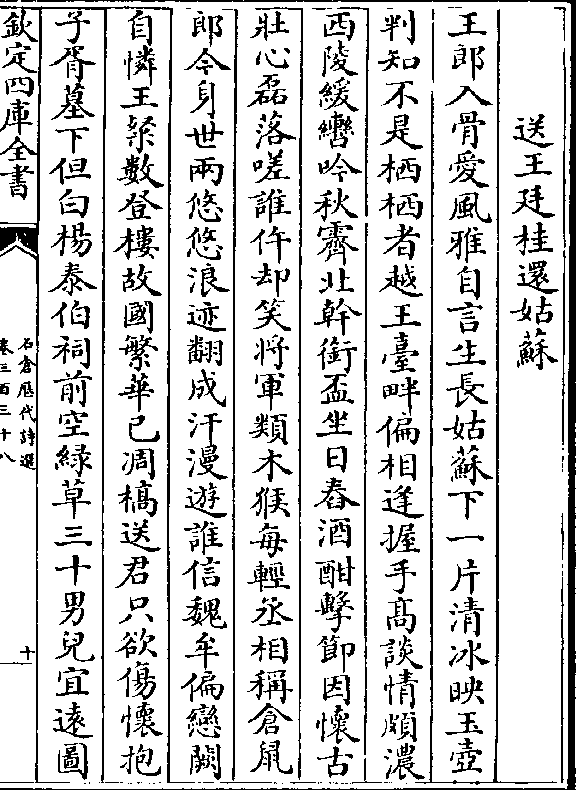 送王廷桂還姑蘇
王郎入骨愛風雅自言生長姑蘇下一片清冰映玉壺
判知不是栖栖者越王臺畔偏相逢握手髙談情頗濃
西陵緩轡吟秋霽北幹銜盃坐日舂酒酣擊節因懷古
壯心磊落嗟誰仵却笑將軍類木猴每輕丞相稱倉鼠
郎今身世兩悠悠浪迹翻成汗漫遊誰信魏牟偏戀闕
自憐王粲數登樓故國繁華已凋槁送君只欲傷懷抱
子胥墓下但白楊泰伯祠前空緑草三十男兒宜遠圖
欽定四庫全書
石倉歴代詩選
卷三百三十八
十